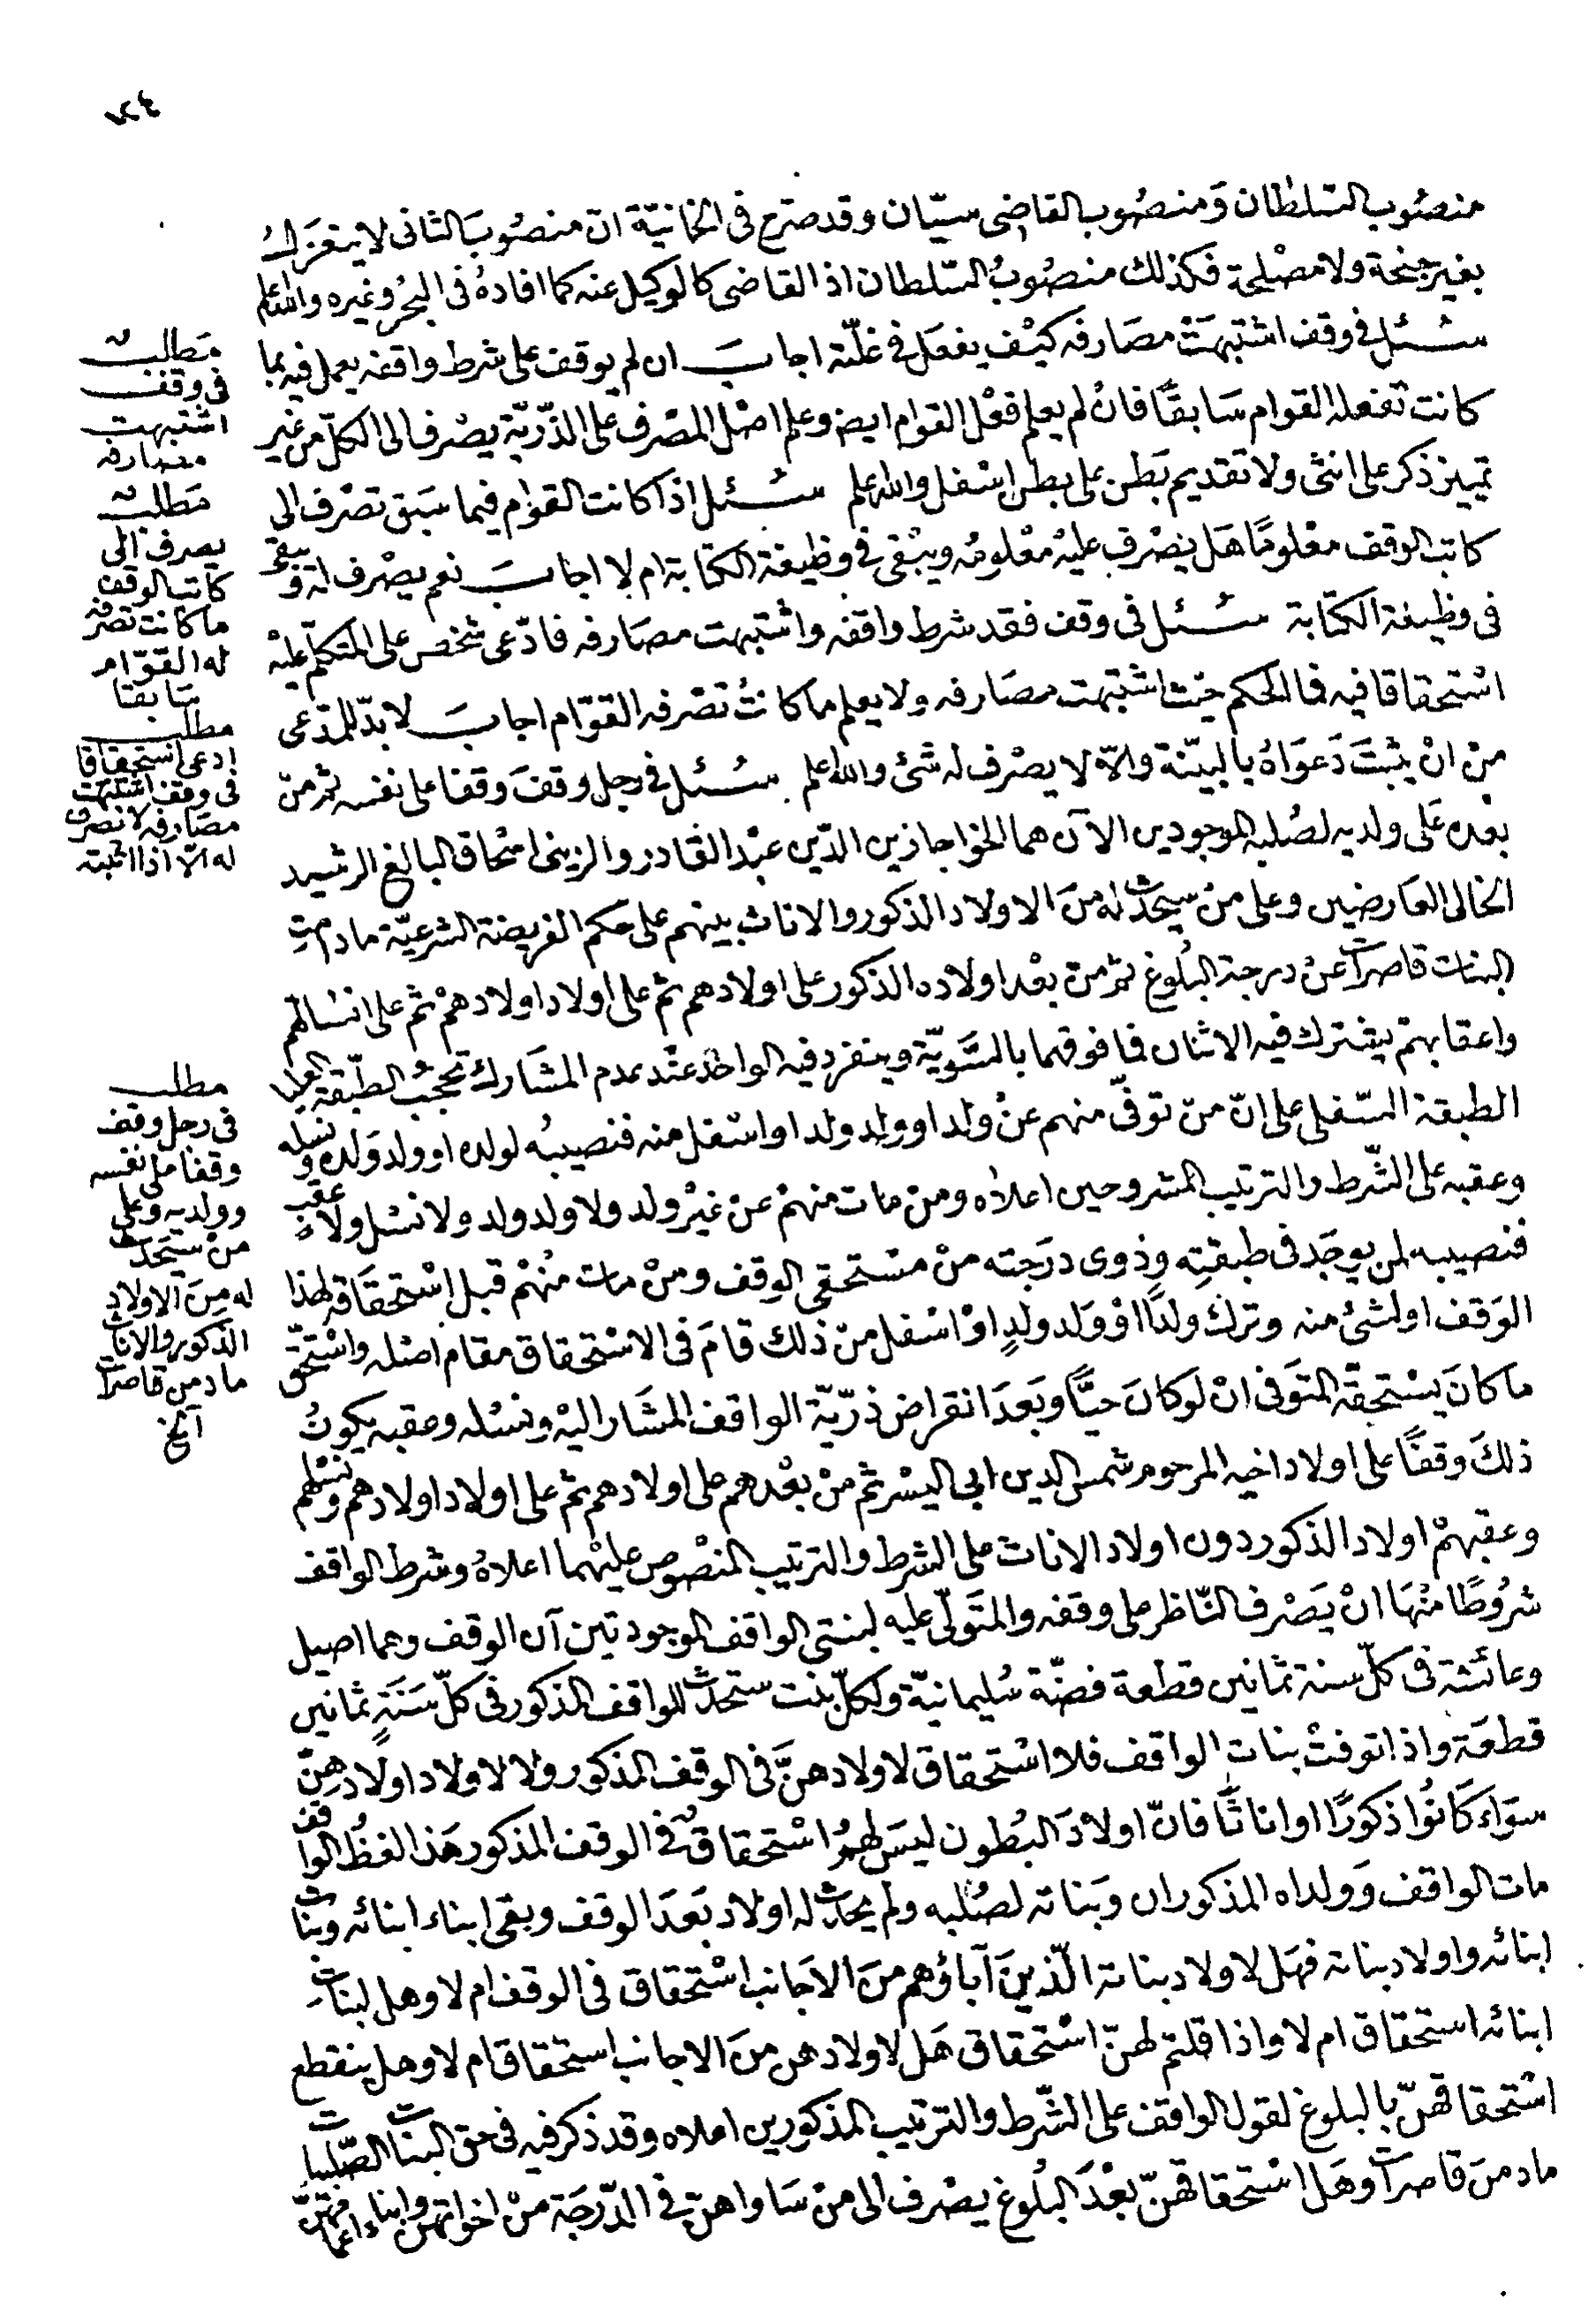 منصُوب السّلطان وَمنصُوب القاضى سيّان وقد صرّح فى الخانيّة انّ منصُوبَ الثانى لا ينعَزلُ
بغير جنحة ولا مصْلحة فكذلك منصُوبُ السّلطان اذ القاضى كالوكيل عنه كما افادهُ فى البحْر وغيره والله اعلم
سُـئل فى وقف اشتبهَتْ مصَارفه كيْف يفعَل فى غلّته اجابَ ان لم يوقف على شرط واقفه يعمل فيه بما
كانت تفعله القوام سَابقًا فانْ لم يعلم فعْل القوام ايض وعلم اصْل المصْرف على الذّريّة يصْرف الى الكلّ من غير
تمييز ذكر على انثى ولا تقديم بَطن على بطن اسْفل والله اعلم سُـئل اذا كانت القوام فيما سَبق تصْرف الى
كاتب الوقف معْلومًا هَل يصْرف عليْه معْلومُه ويبْقى فى وظيفة الكتابة ام لا اجابَ نعم يصْرف له ويبقى
فى وظيفة الكتابة سُـئل فى وقف فقد شرط واقفه واشتبهت مصَارفه فادّعى شخص على المتكلّم عليْه
اسْتحقاقا فيه فما الحكم حيْث اشتبهت مصَارفه ولا يعلم ما كانتْ تصْرفه القوّام اجابَ لا بدّ للمدّعى
منْ انْ يثبتَ دَعوَاهُ بالبيّنة والاّ لا يصْرف له شئ والله اعلم سُـئل فى رجل وقفَ وقفا على نفسه ثمّ منْ
بعْده عَلى ولديه لصُلبه الموجودين الآن هما الخواجا زين الدّين عبْد القادر والزينى اسْحاق البالغ الرشيد
الخالى العَارضين وعلى منْ سيحْدث له منَ الاولاد الذكور والاناث بينهم على حكم الفريضة الشرعيّة ما دامتِ
البنات قاصراتٍ عنْ درجة البُلوغ ثمّ منْ بعْد اولاده الذكور على اولادهم ثمّ على اولاد اولادهمْ ثمّ على انسْالهم
واعقابهمْ يشترك فيه الاثنان فما فوقهما بالسَّويّة وينفرد فيه الواحدُ عنْد عدم المشَارك تحجُبُ الطّبقة العليا
الطبقة السّفلى على انّ منْ توفّى منهم عنْ ولد او ولد ولد او اسْفل منه فنصيبُه لولده او ولد وَلده ونسله
وعقبه على الشّرط والترتيب المشروحين اعلاه ومنْ مات منهمْ عنْ غيْر ولد ولا ولد ولد ولا نسْل ولا عقب
فنصيبه لمن يوجَد فى طبقتِه وذوى درَجته منْ مسْتحقى الوقف ومنْ مات منْهمْ قبل اسْتحقاقه لهذا
الوَقف او لشئ منه وتركَ ولدًا اوْ وَلد ولدٍ اوْ اسْفل منْ ذلك قامَ فى الاسْتحقاق مقام اصْله واسْتحقّ
ما كانَ يسْتحقّه المتوَفى انْ لو كانَ حيًّا وبَعدَ انقراض ذرّيّة الواقف المشَار اليْه ونسْله وعقبه يكونُ
ذلكَ وقفًا على اولاد اخيه المرحوم شمس الدين ابى اليسْر ثمّ منْ بعْدهم على اولادهم ثمّ على اولاد اولادهم ونسْلهم
وعقبهمْ اولاد الذكور دون اولاد الاناث على الشرط والترتيب المنْصُوص عليْهما اعلاهُ وشرط الواقف
شرُوطًا منْهَا انْ يَصْرف النّاظر على وقفه والمتَولّى عليه لبنتى الواقف الموجودتين آن الوقف وهما اصيل
وعائشة فى كلّ سنة ثمانين قطعة فضّة سُليمانيّة ولكلّ بنت ستحْدث للواقف المذكور فى كلّ سَنَةٍ ثمانين
قطعَة واذا توفتْ بنات الواقف فلا اسْتحقاق لاولادهنَّ فى الوقف المذكور ولا لاولاد اولادهِنّ
سوَاء كَانُوا ذكورًا او اناثًا فانّ اولادَ البُطون ليسَ لهمُ اسْتحقاقٌ فى الوقف المذكور هَذا لفظُ الواقف
مات الواقف وَولداه المذكوران وَبناته لصُلبه ولم يحْدث له اولاد بَعدَ الوقف وبقى ابناء ابنائه وبنات
ابنائه واولاد بناته فهَل لاولاد بناته الّذينَ آباؤهم منَ الاجَانب اسْتحقاق فى الوقف ام لا وهل لبناتِ
ابنائه استحقاق ام لا واذا قلتم لهنّ اسْتحقاق هَل لاولادهن منَ الاجانب استحقاق ام لا وهل ينقطع
اسْتحقاقهنّ بالبلوغ لقول الواقف على الشّرط والترتيب المذكورين اعلاه وقد ذكر فيه فى حق البنات الصّلبيات
ما دمنَ قاصرات وهَل اسْتحقاقهنّ بعْدَ البُلوغ يصْرف الى منْ سَاواهنّ فى الدّرجَة منْ اخوَاتهنّ وابناء اعمامهنّ
مَطلب
فى وقف
اشتبهت
مصارفه
مَطلب
يصرف الى
كاتب الوقف
ما كانت تصرفه
له القوّام
سَابقا
مطلب
ادعى استحقاقا
فى وقف اشتبهت
مصَارفه لا تصرف
له الاّ اذا اثبته
مطلب
فى رجل وقف
وقفا على نفسه
وولديه وعلى
منْ سيَحدث
له مِنَ الاولاد
الذكور والاناث
ما دمن قاصرات
آلخ